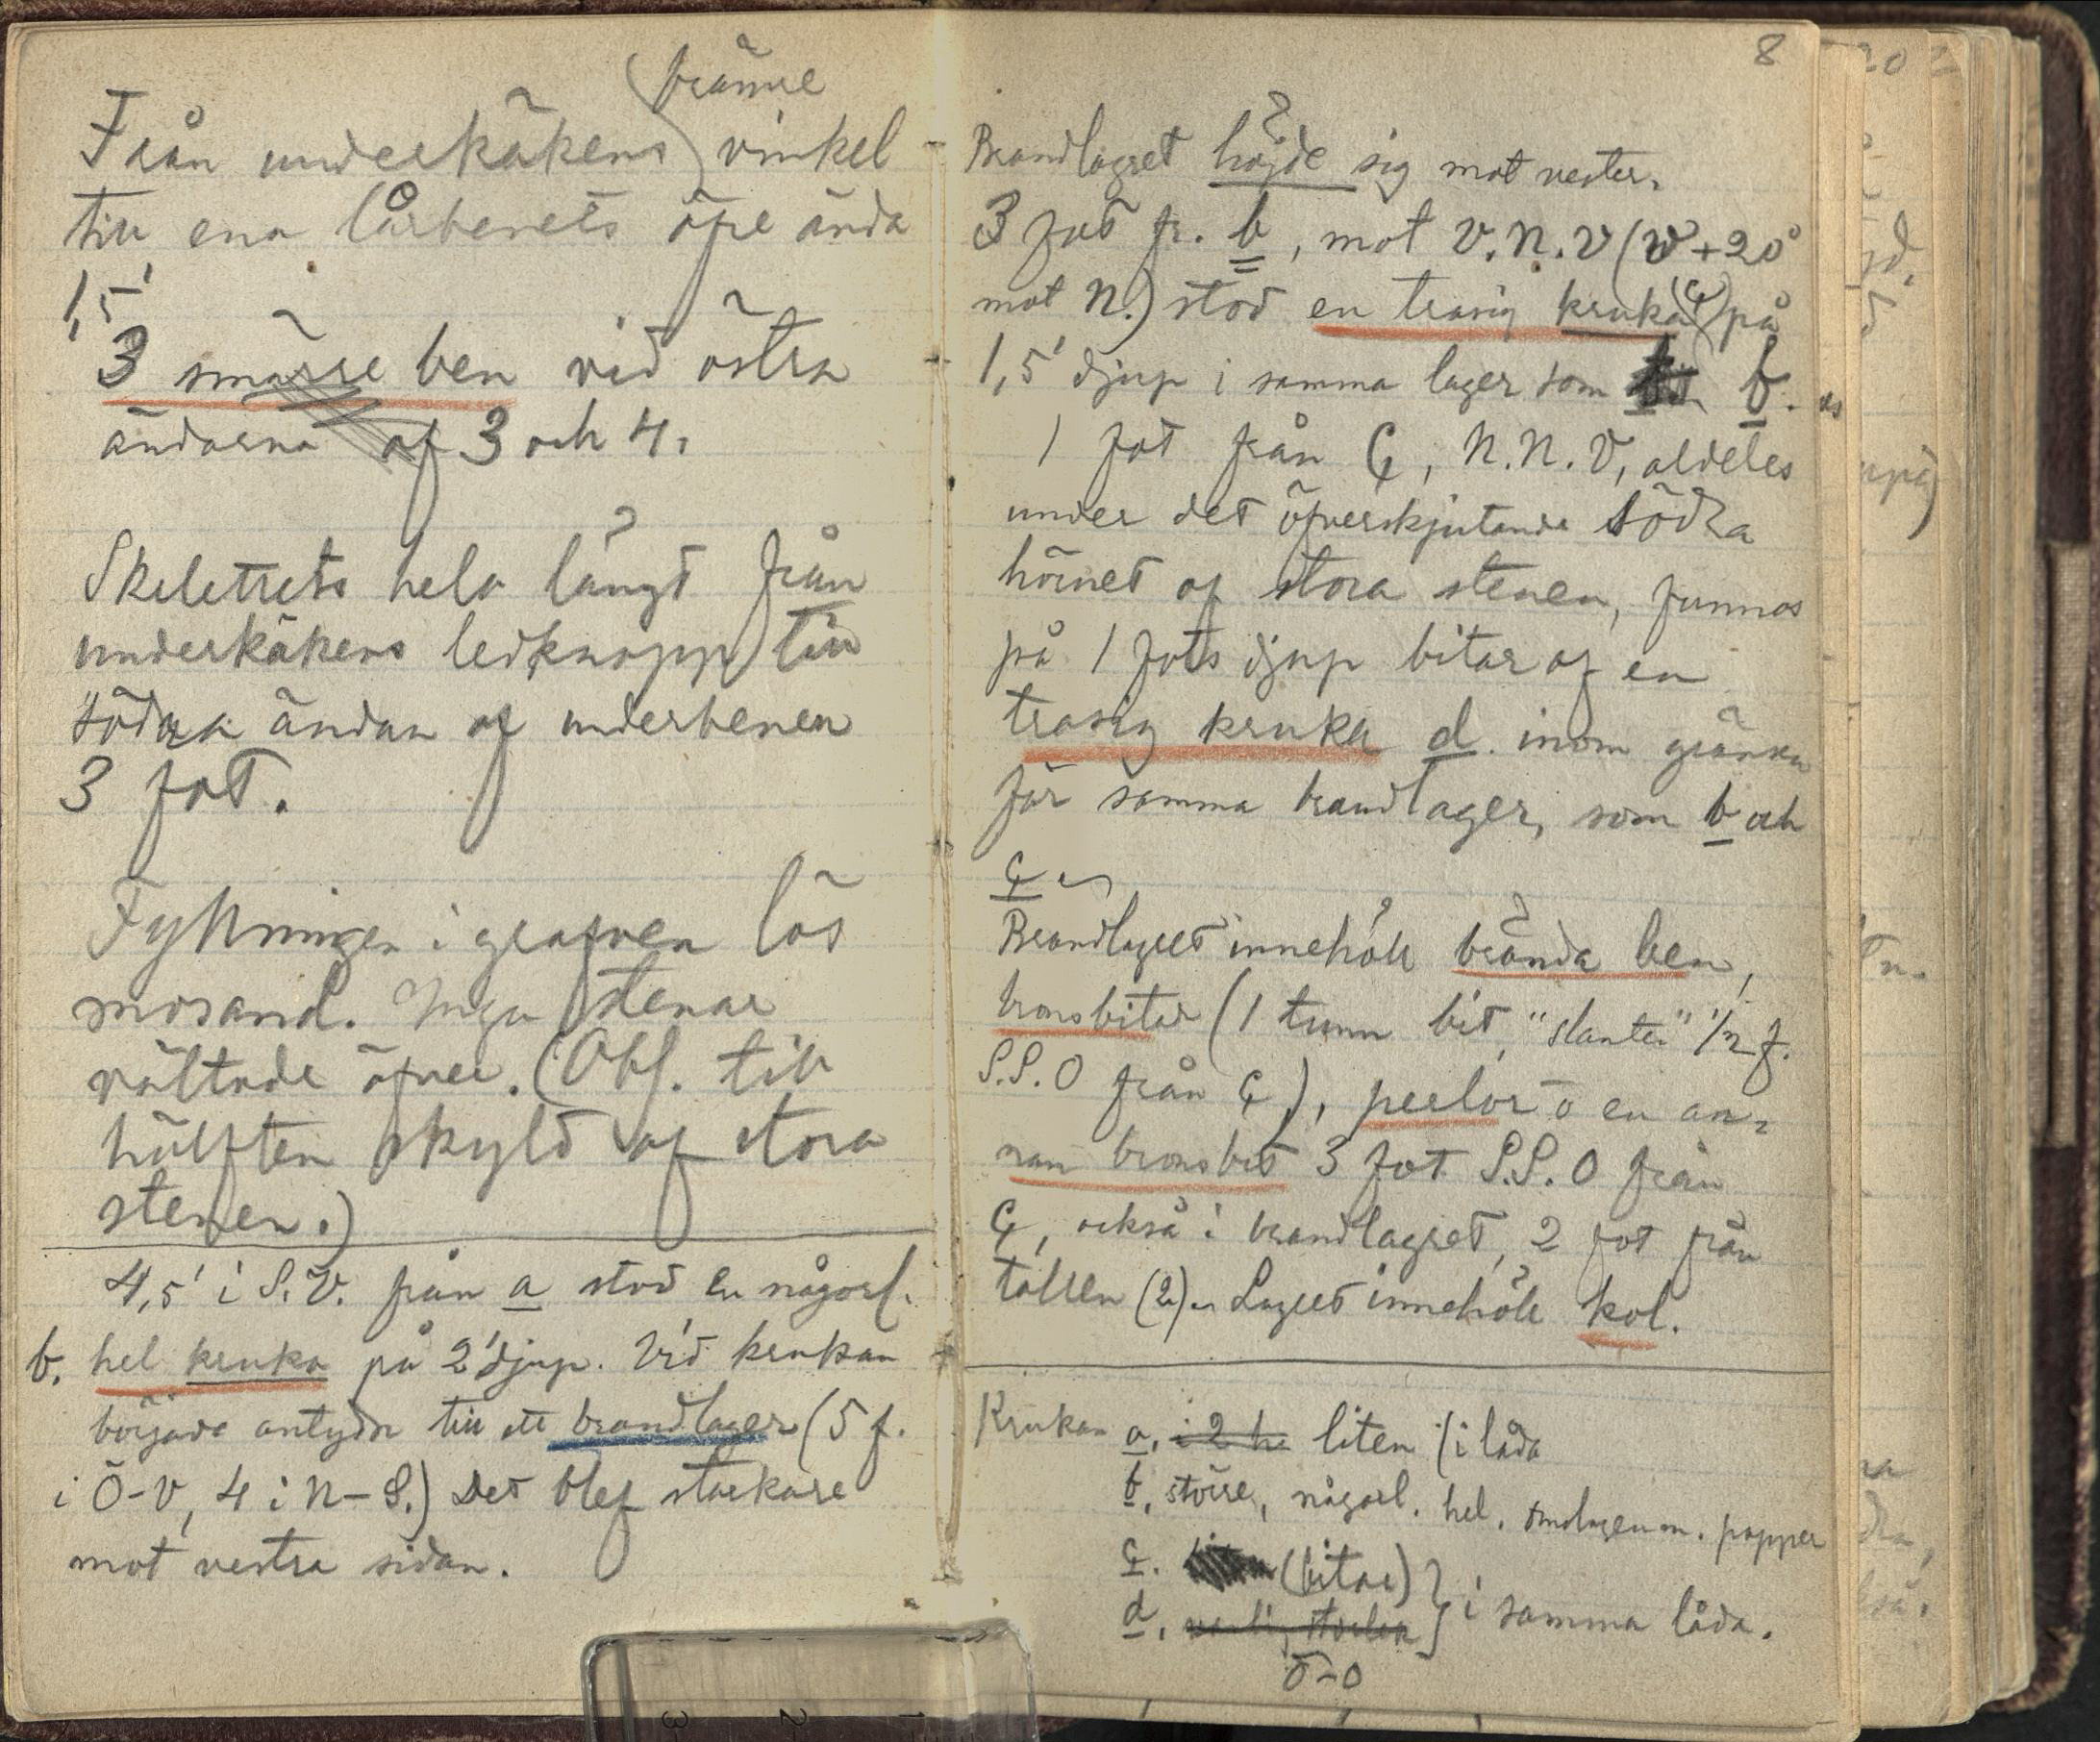 främre
Från underkäkens vinkel
till ena lårbenets öfre ända
1,5'
3 smärre ben vid östra
ändarna af 3 och 4.
Skelettets hela längd från
underkäkens ledknapp till
södra ändan af underbenen
3 fot.
Fyllningen i grafven lös
mosand. Inga stenar
vältade öfver. (Obs. till
hälften skyld af stora
stenen.)
4,5' i S.V. från a stod en någorl.
b. hel kruka på 2' djup. Vid krukan
började antydn till ett brandlager (5 f.
i Ö-V, 4 i N-S.) Det blef starkare
mot vestra sidan.
8
Brandlagret höjde sig mot vester.
3 fot fr. b, mot V.N.V (V+20°
mot N.) stod en trasig kruka (c) på
1,5' djup i samma lager som b.
1 fot från c, N.N.V, aldeles
under det öfverskjutande södra
hörnet af stora stenen, funnos
på 1 fots djup bitar af en
trasig kruka d. inom gränsen
för samma brandlager, som b och
c
Brandlagret innehöll brända ben,
bronsbitar (1 tunn bit, "slanten" 1/2 f.
S.S.O från c), perlor o en an-
nan bronsbit 3 fot S.S.O från
c, också i brandlagret, 2 fot från
tallen (2). Lagret innehöll kol.
Krukan a, i 2 h liten (i låda
b, större, någorl. hel, omslagen m. papper
c. (bitar) }
d, } i samma låda.
Ö-O